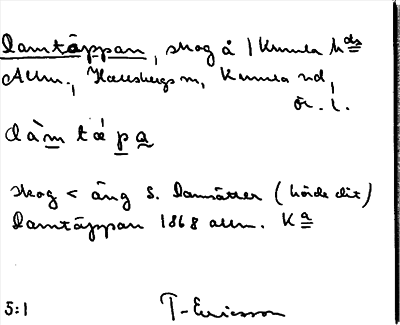 Damtäppan, skog å 1 Kumla hds
Allm., Hallsbergs m, Kumla nd,
Ör. l.
dàm tá p a
skog < äng S. Damsätter (hörde dit)
Damtäppan 1868 allm. Ka
5:1 T-Ericsson